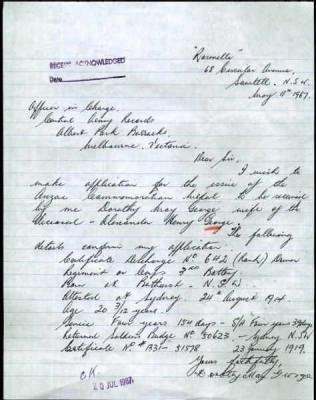 "Rosmella"
68 Circular Avenue,
Sawtell. N.S.W.
May 11th 1967.
RECEIPT ACKNOWLEDGED
Date
Officer in Charge,
Central Army Records
Albert Park Barracks,
Melbourne. Victoria.
Dear Sir,
I wish to
make application for the issue of the
Anzac Commemoration to be received
by me Dorothy May George wife of the
deceased - Alexander Henry George.
The following
details confirm my application
Certificate Discharge No 642 (Rank) Driver
Regiment or Corps 3rd Battery
Born at Bathurst N.S.W
Attested at Sydney. 24th August 1914.
Age 20 3/12 years.
Service Four years 154 days - Four years 39 days
Returned Soldiers Badge No 50623 - Sydney N.S.W
Certificate No 31578 23 January 1919.
Yours faithfully,
Dorothy May George
O.K.
20 JUL 1967